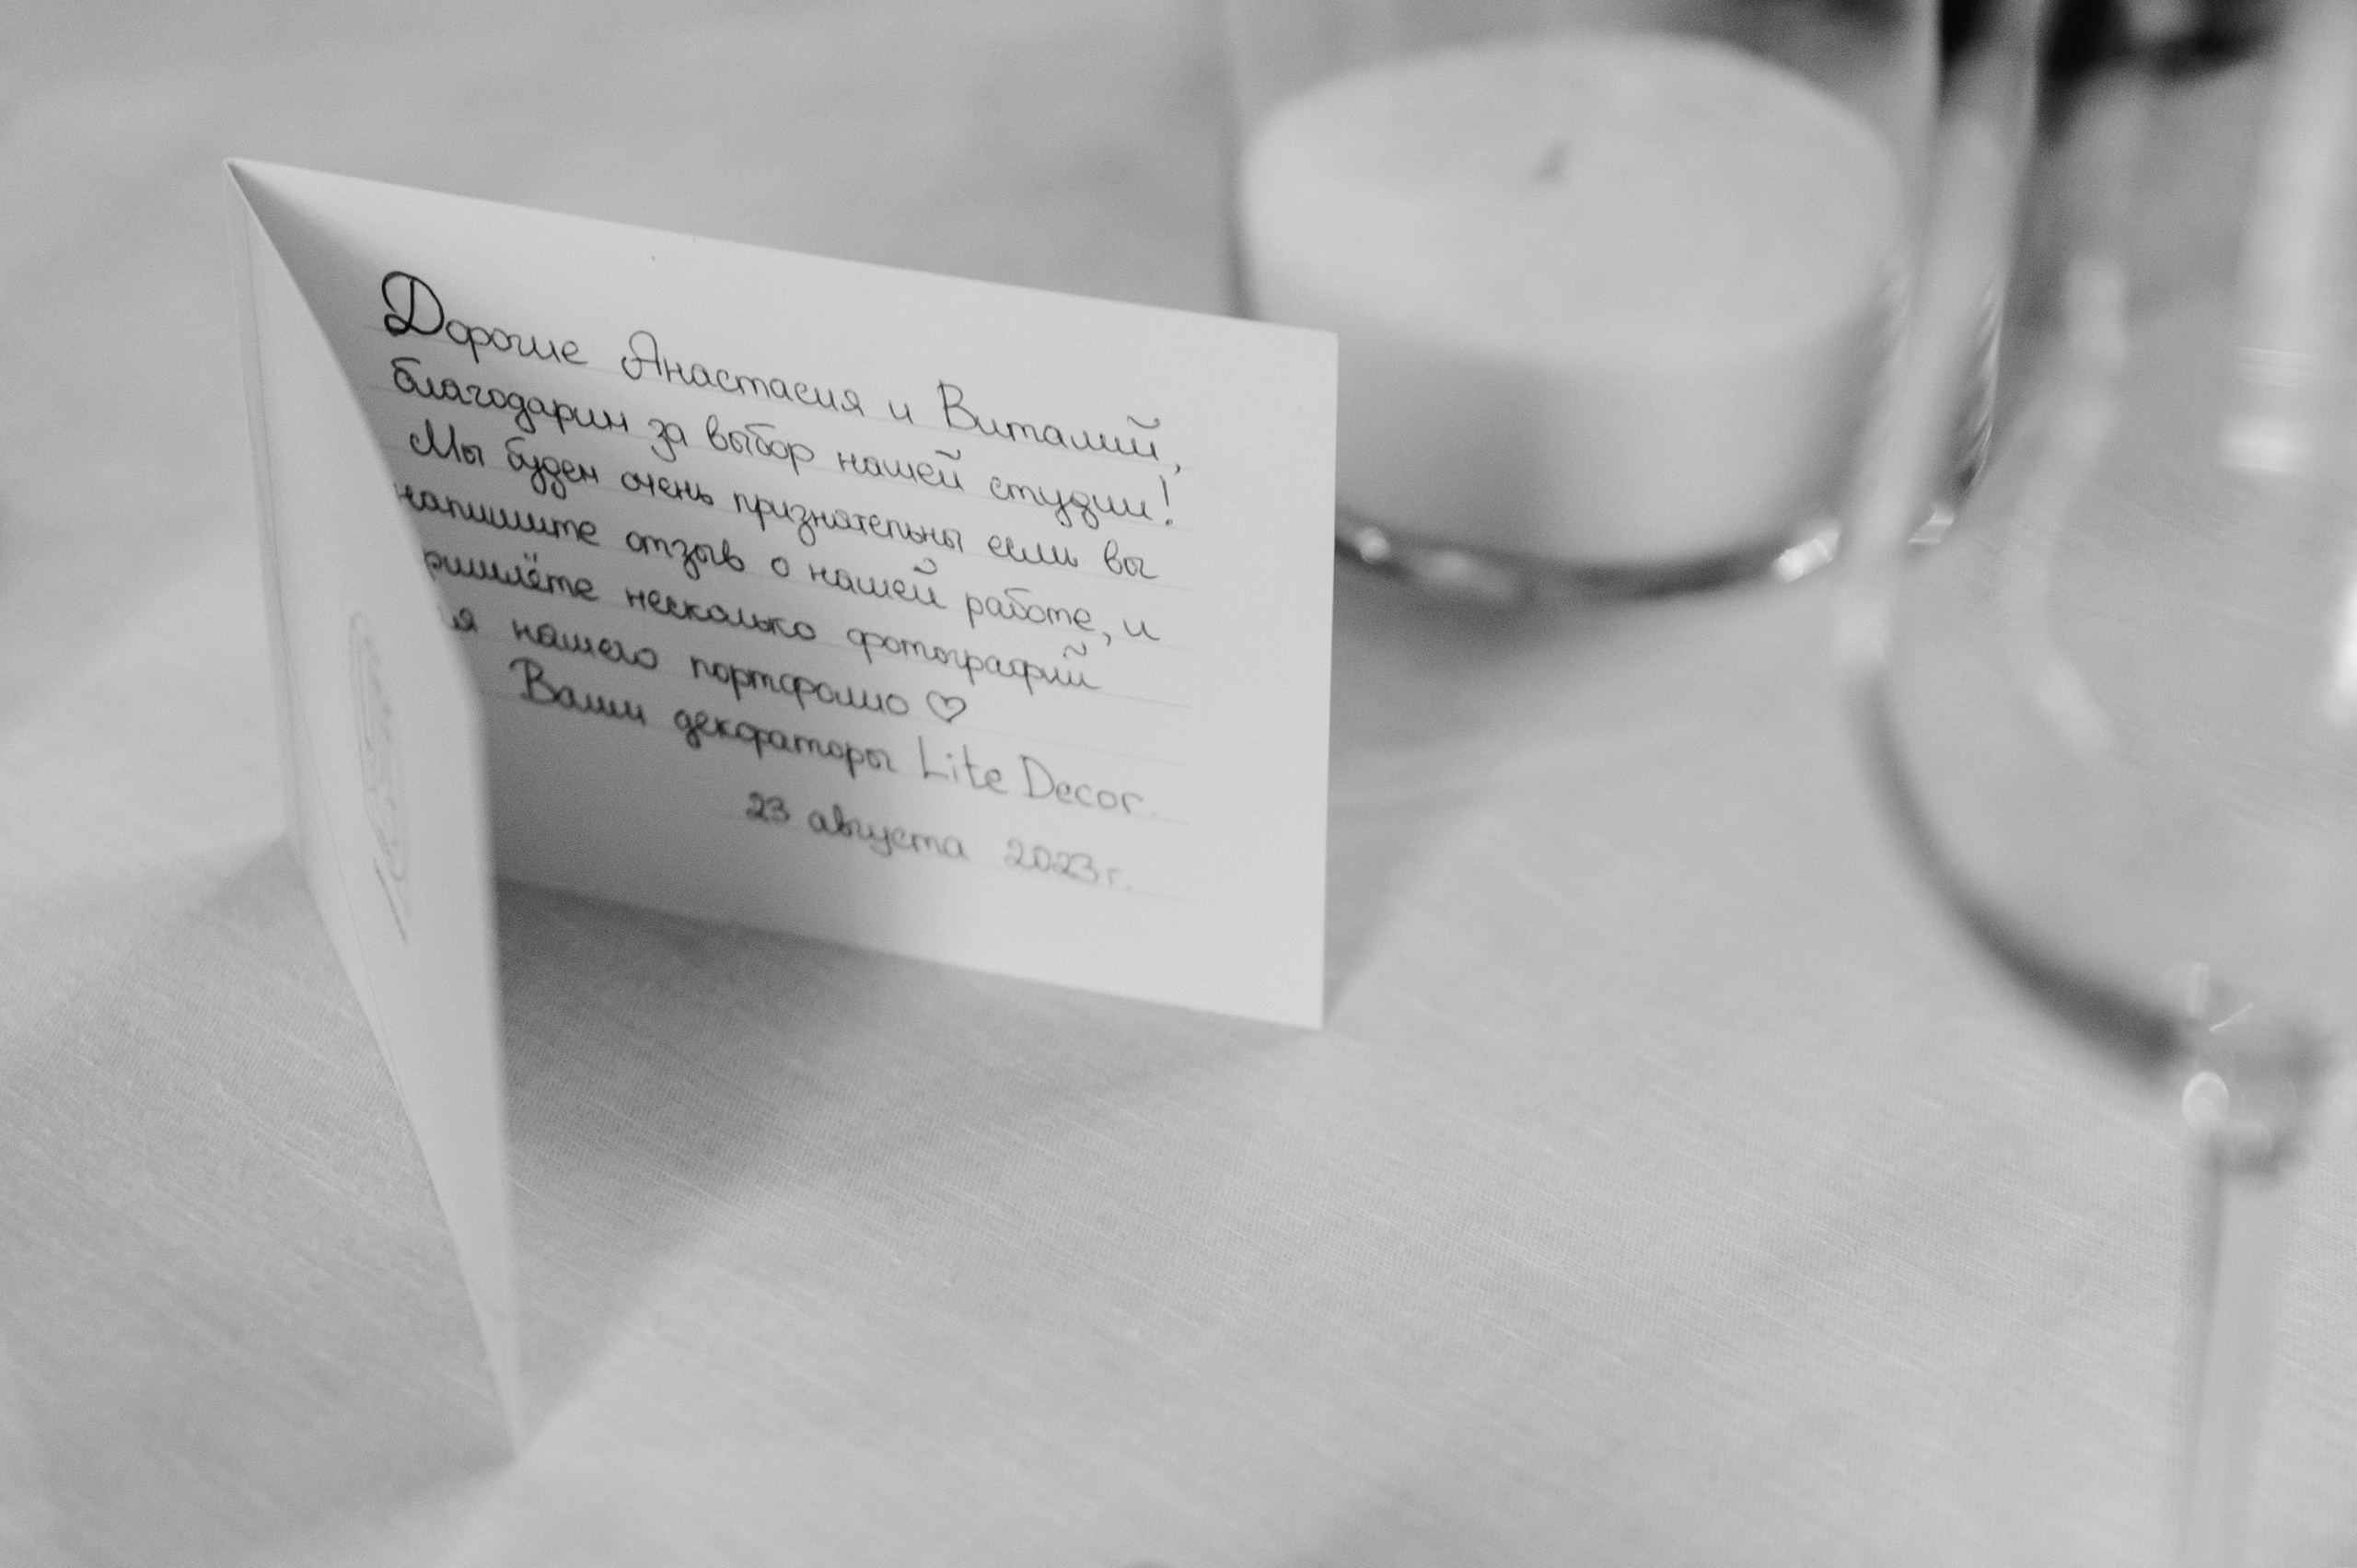 Дорогие Анастасия и Виталий,
благодарим за выбор нашей студии!
Мы будем очень признательны если вы
напишите отзыв о нашей работе, и
ришлёте несколько фотографий
я нашего портфолио ♡
Ваши декораторы Lite Decor.
23 августа 2023 г.